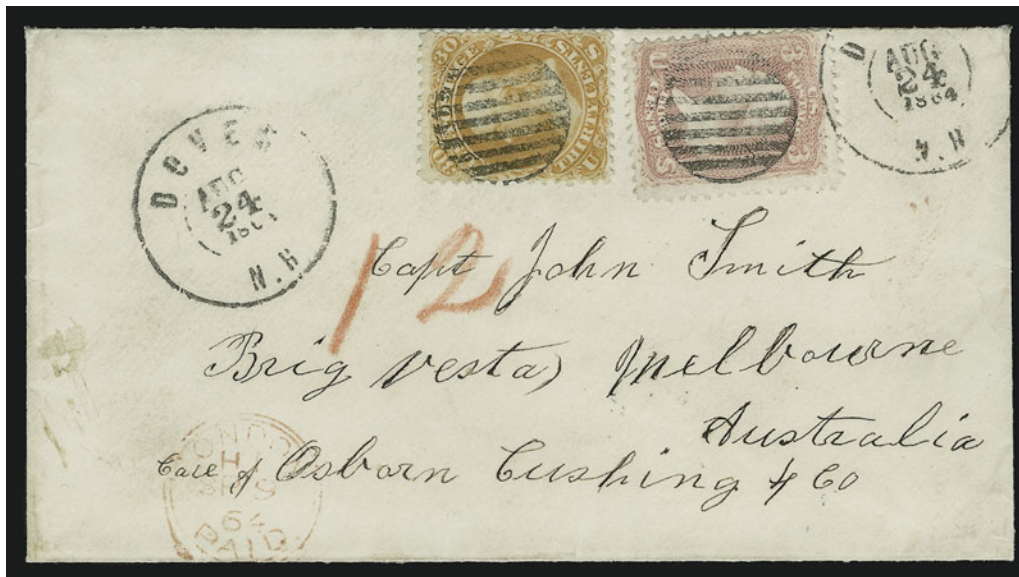 DOVER
AUG
24
N.H
30
3
D
AUG
24
1864
N.H
12
Capt John Smith
Brig Vesta, Melbourne
Australia
Care of Osborn Cushing & Co
LONDON
H
SP 9
64
PAID